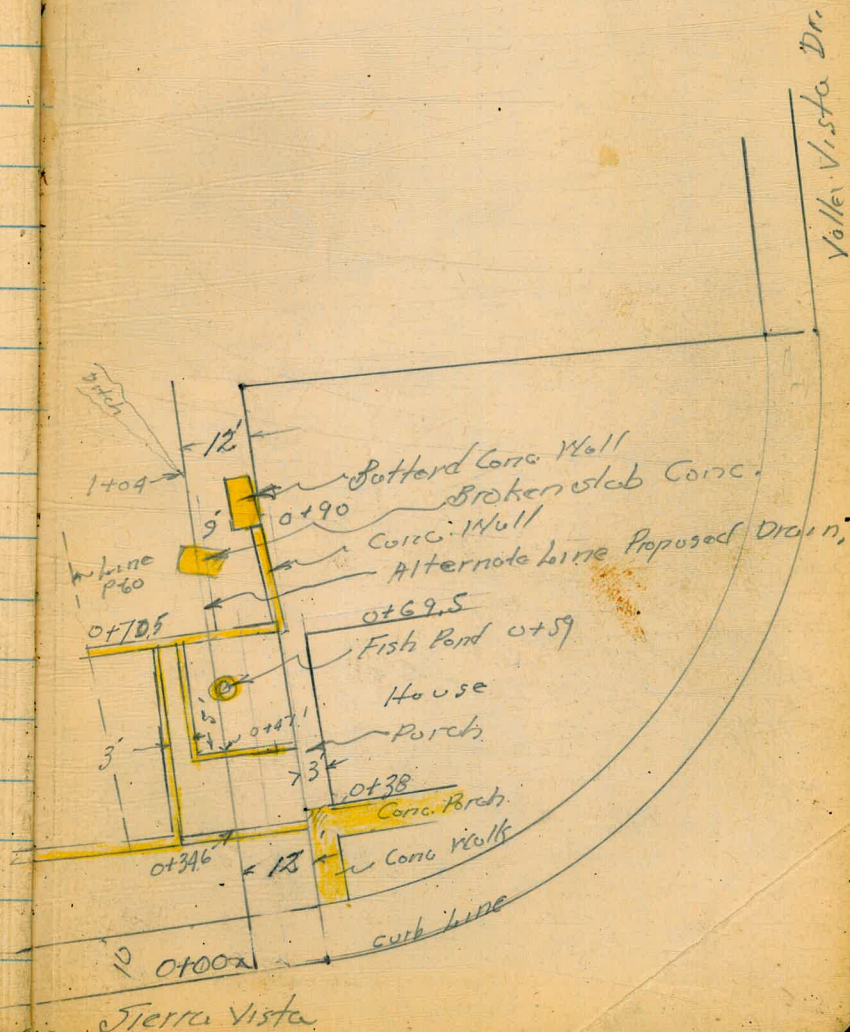 Valley Vista Dr.
Ditch
12'
1+04
Batterd Conc. Wall
Broken slab Conc.
0+90
9'
Conc. Wall
Alternate Line Proposed Drain.
Line
P-60
0+70.5
0+69.5
Fish Pond 0+59
House
5'
0+47.1
Porch
3'
3'
0+38
Conc. Porch
0+34.6
12'
Conc Walk
curb Line
10
0+00
Sierra Vista